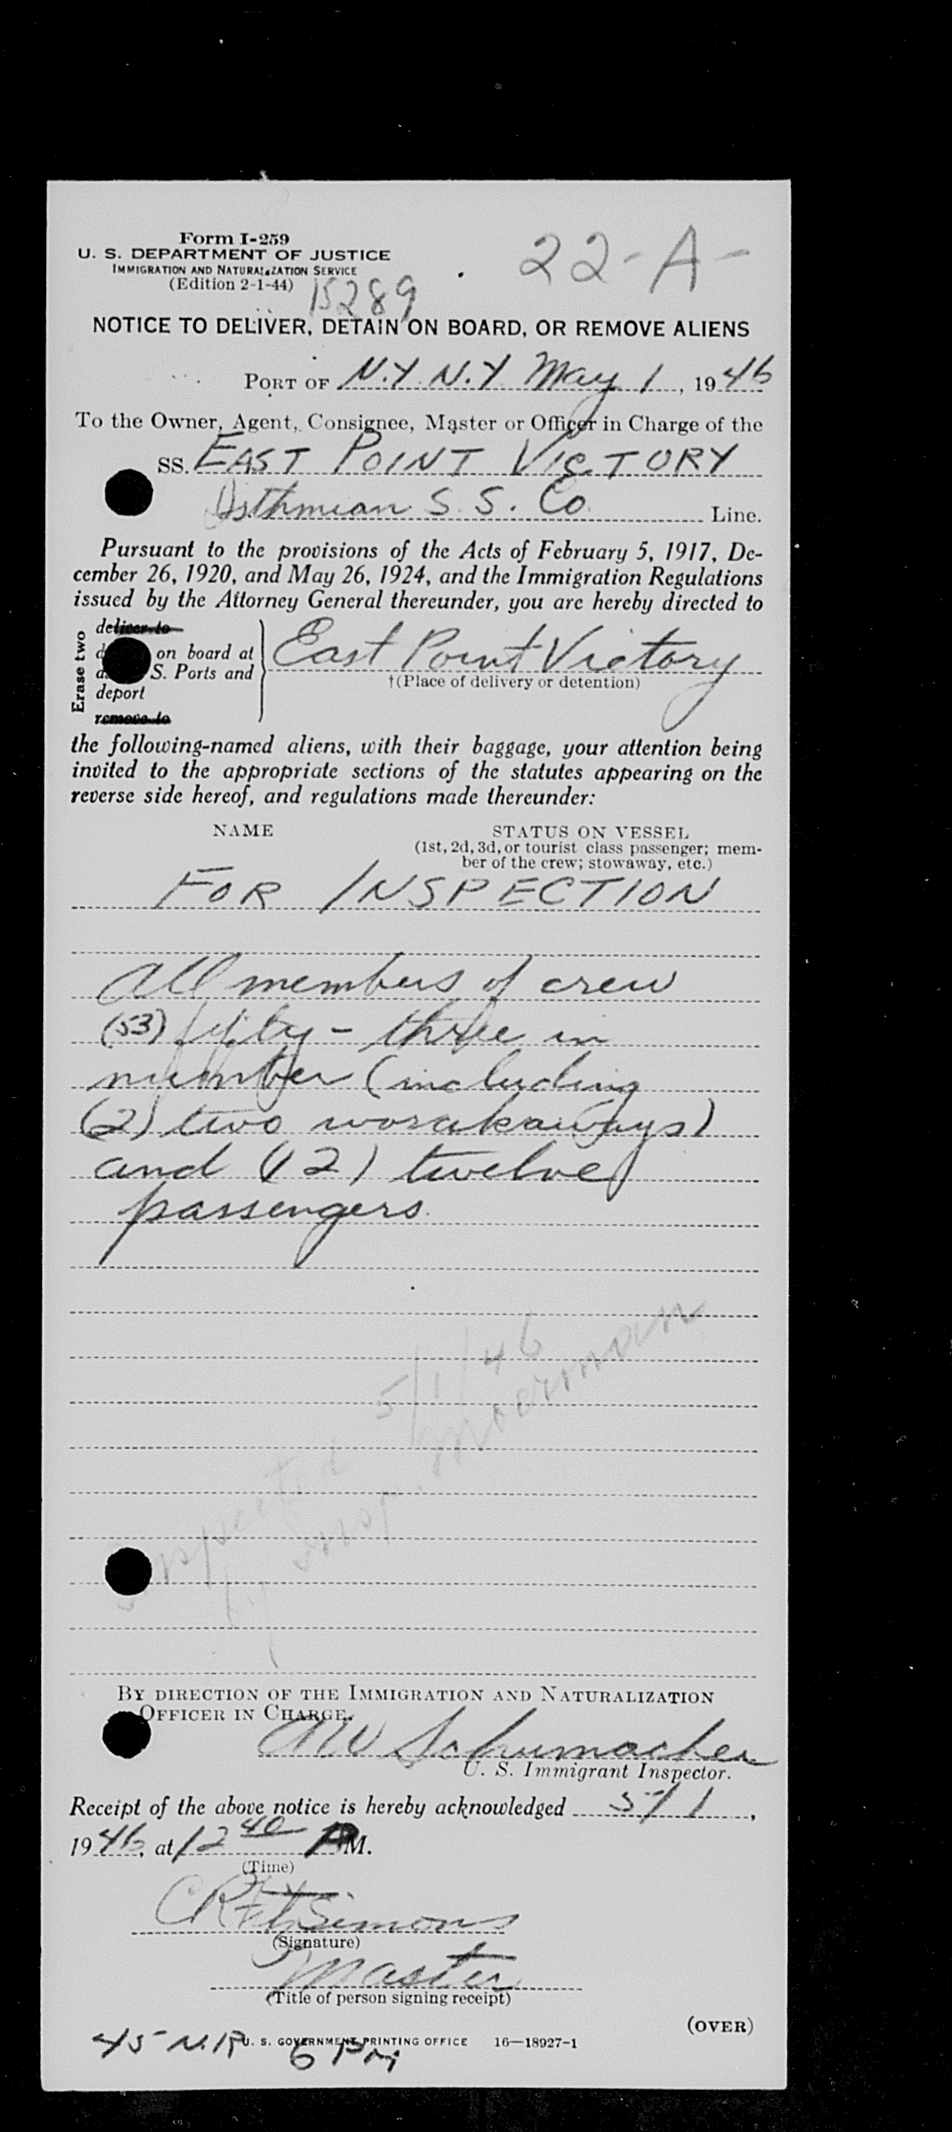 Form I-259
U. S. DEPARTMENT OF JUSTICE
IMMIGRATION AND NATURALIZATION SERVICE
(Edition 2-1-44)
22-A-
15289
NOTICE TO DELIVER, DETAIN ON BOARD, OR REMOVE ALIENS
PORT OF N.Y. N.Y. May 1, 1946
To the Owner, Agent, Consignee, Master or Officer in Charge of the
SS. EAST POINT VICTORY
Isthmian S. S. Co. Line.
Pursuant to the provisions of the Acts of February 5, 1917, De-
cember 26, 1920, and May 26, 1924, and the Immigration Regulations
issued by the Attorney General thereunder, you are hereby directed to
Erase two
deliver to
on board at
S. Ports and
deport
remove to
East Point Victory
†(Place of delivery or detention)
the following-named aliens, with their baggage, your attention being
invited to the appropriate sections of the statutes appearing on the
reverse side hereof, and regulations made thereunder:
NAME STATUS ON VESSEL
(1st, 2d, 3d, or tourist class passenger; mem-
ber of the crew; stowaway, etc.)
FOR INSPECTION
All members of crew
(53) fifty-three in
number (including
(2) two worakaways)
and (12) twelve
passengers.
Inspected 5/1/46
by Insp.
BY DIRECTION OF THE IMMIGRATION AND NATURALIZATION
OFFICER IN CHARGE.
AW Schumacher
U. S. Immigrant Inspector.
Receipt of the above notice is hereby acknowledged 5/1,
1946, at 12 40 PM.
(Time)
CR FitzSimons
(Signature)
Master
(Title of person signing receipt)
(OVER)
U. S. GOVERNMENT PRINTING OFFICE 16—18927-1
45 N.R. 6 PM